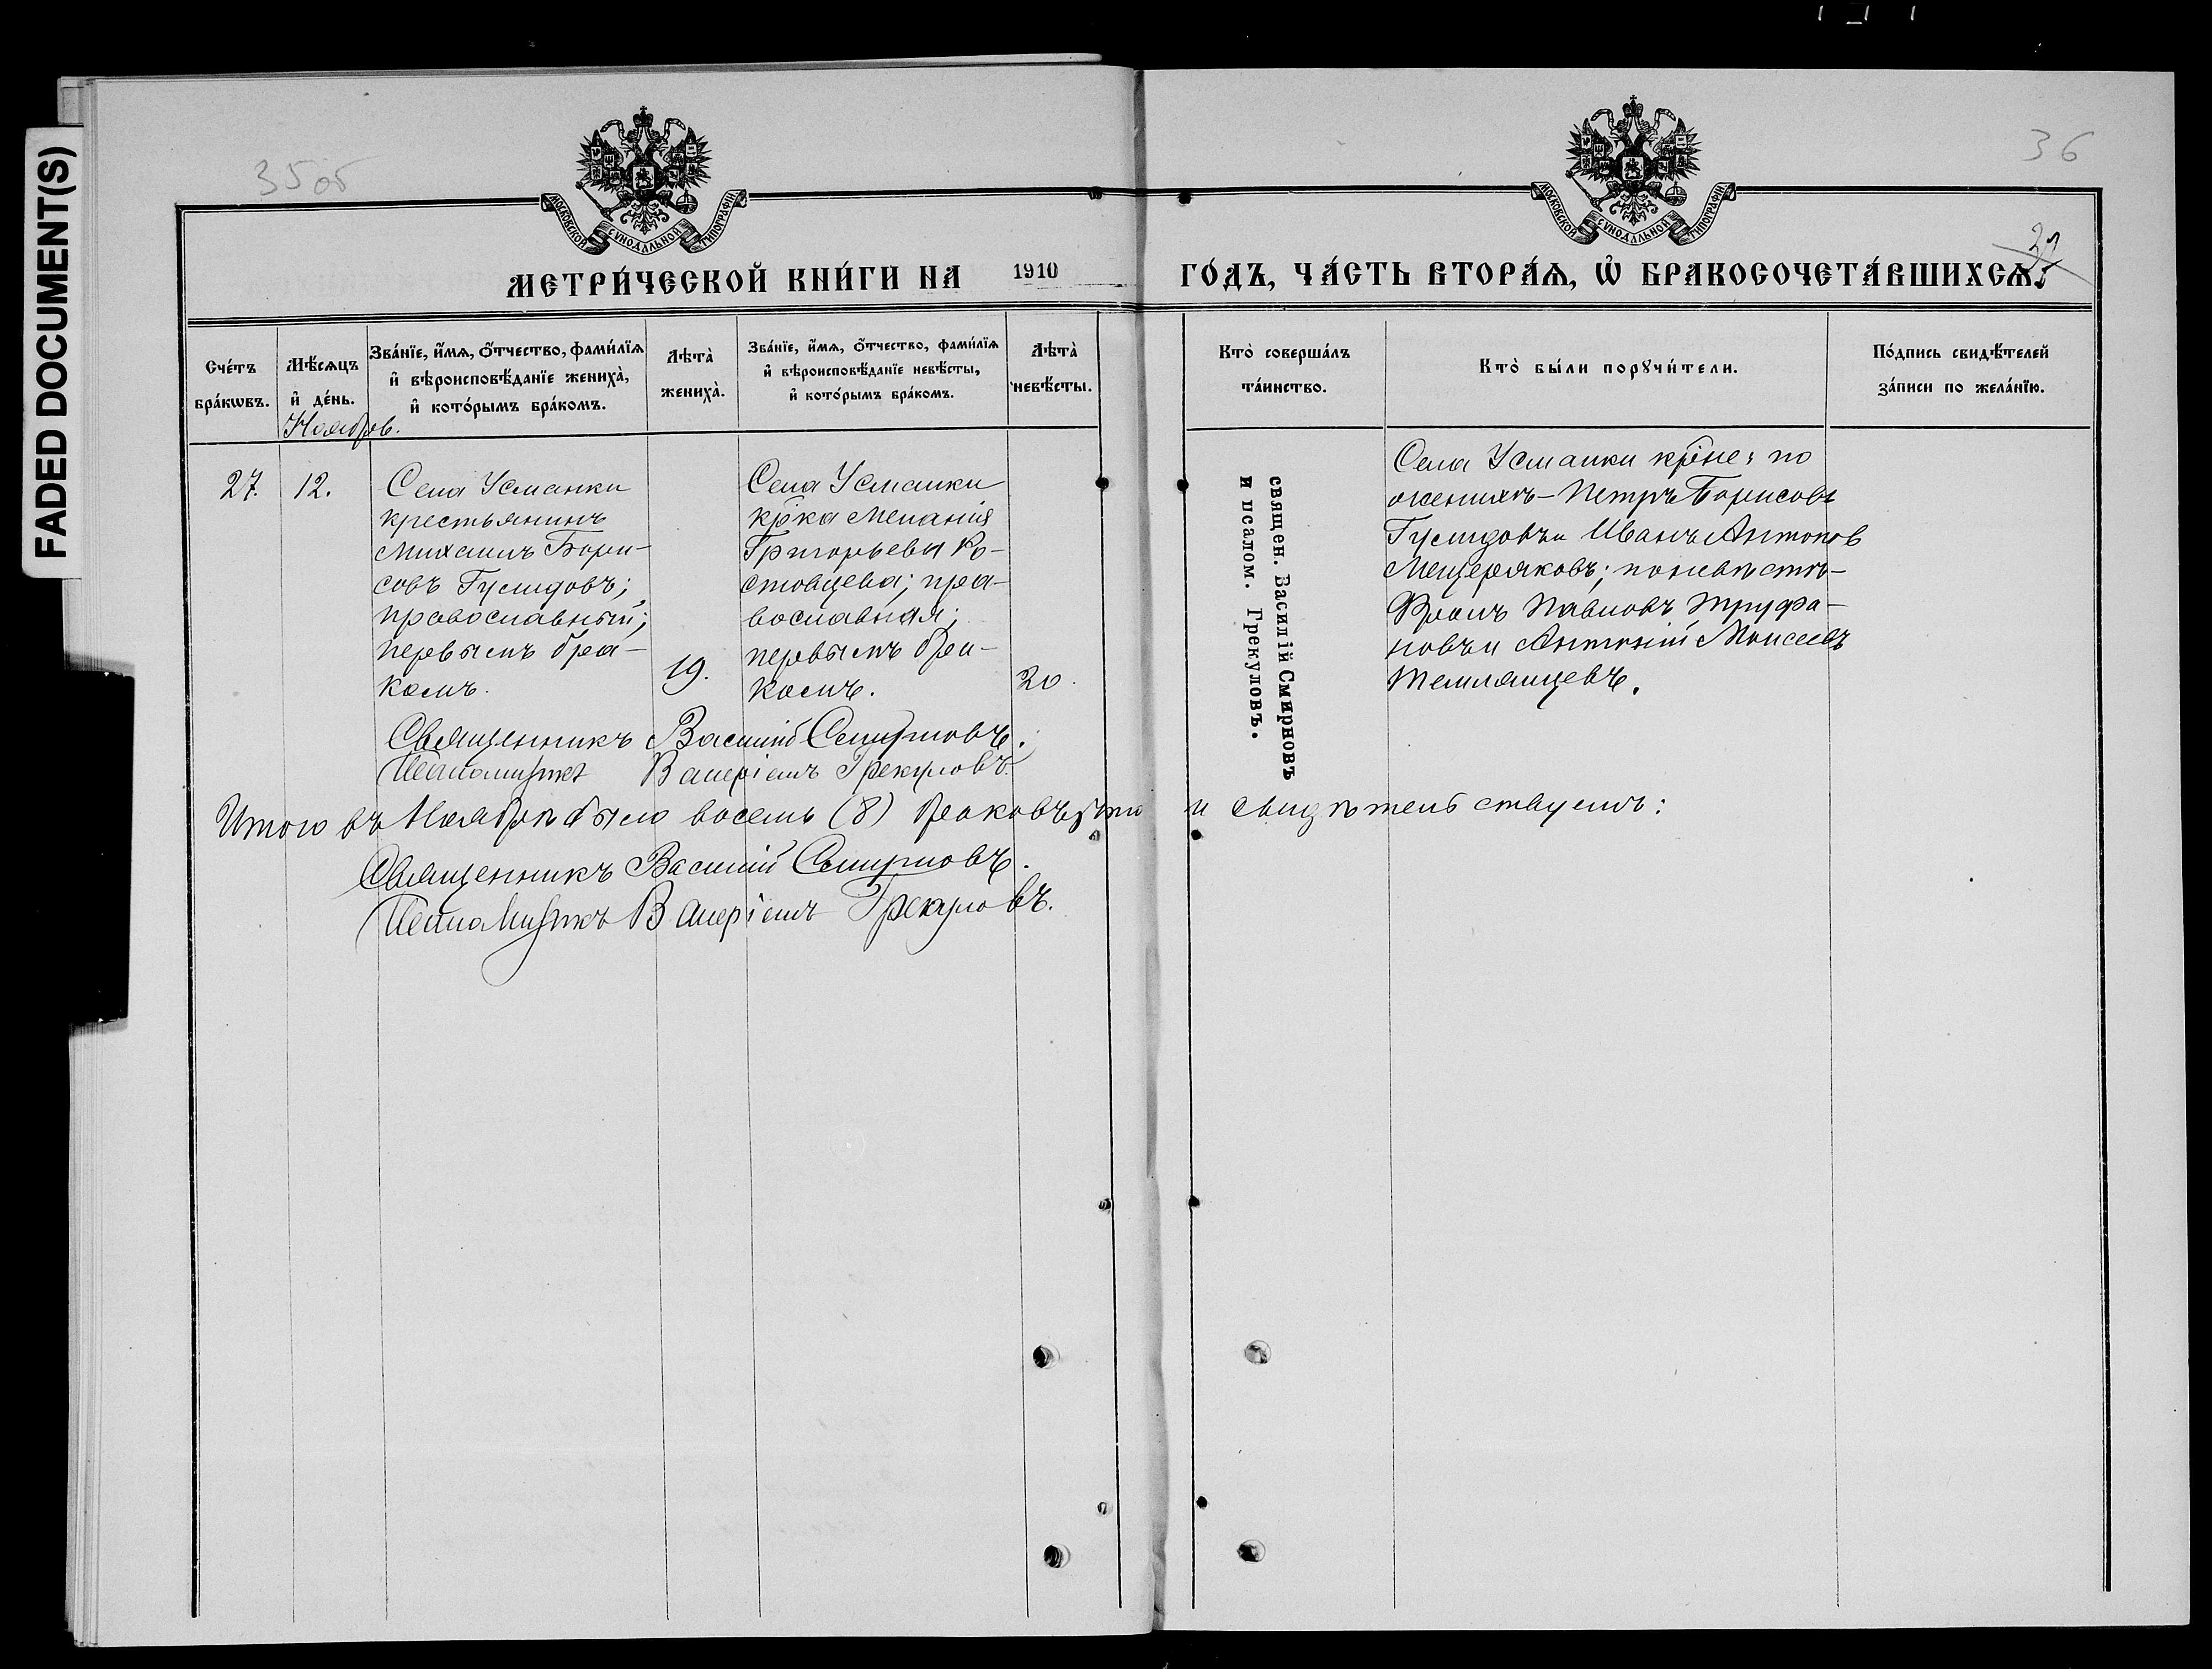 FADED DOCUMENT(S)
35 об
36
МОСКОВСКОЙ СѴНОДАЛЬНОЙ ТИПОГРАФІИ
МОСКОВСКОЙ СѴНОДАЛЬНОЙ ТИПОГРАФІИ
МЕТРИ́ЧЕСКОЙ КНИ́ГИ НА 1910 ГО́ДЪ, ЧА́СТЬ ВТОРА́Ѧ, Ѽ БРАКОСОЧЕТА́ВШИХСѦ.
Сче́тъ
бра́кѡвъ.
Мѣ́сѧцъ
и҆ де́нь.
Ноябрь.
Зва́нїе, и҆́мѧ, ѻ҆́тчество, фами́лїѧ
и҆ вѣроисповѣ́данїе жениха̀,
и҆ кото́рымъ бра́комъ.
Лѣта̀
жениха̀.
Зва́нїе, и҆́мѧ, ѻ҆́тчество, фами́лїѧ
и҆ вѣроисповѣ́данїе невѣ́сты,
и҆ кото́рымъ бра́комъ.
Лѣта̀
невѣ́сты.
Кто̀ соверша́лъ
та́инство.
Кто̀ бы́ли порꙋчи́тели.
По́дпись свидѣ́телей
за́писи по жела́нїю.
27.
12.
Села Усманки
крестьянинъ
Михаилъ Бори-
совъ Гусмдовъ;
православный;
первымъ бра-
комъ.
19.
Села Усманки
кр̃ка Меланія
Григорьева Ро-
стовцева; пра-
вославная;
первымъ бра-
комъ.
20.
священ. Василій Смирновъ
и псалом. Грекуловъ.
Села Усманки кр̃не: по
женихѣ - Петръ Борисовъ
Иванъ Антоновъ
Мещеряковъ; по невѣстѣ-
Фролъ Павловъ Труфа-
новъ и Антоній Моисеевъ
Темлянцевъ.
Священникъ Василій Смирновъ.
Псаломщикъ Валеріанъ Грекуловъ.
Итого въ Ноябрѣ было восемь (8) браковъ, что и свидѣтельствуемъ:
Священникъ Василій Смирновъ.
Псаломщикъ Валеріанъ Грекуловъ.